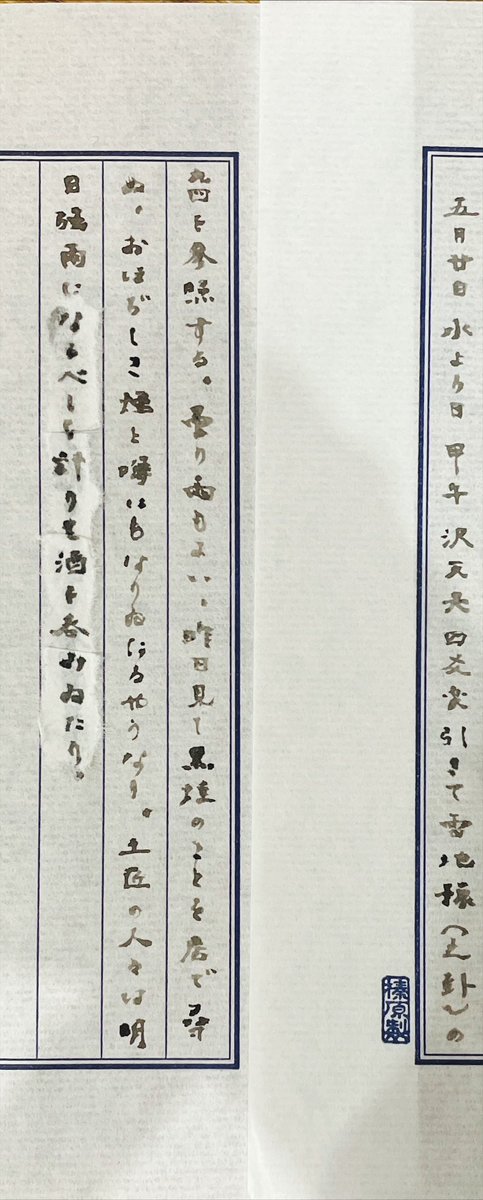 五月廿日 水よう日 甲午 沢天夬 四爻変 引きて雷地豫（上卦）の
榛原製
九四を参照する。曇り雨もよい、昨日見し黒蛙のことを店で尋
ぬ。おほぢしこ煙と噂にもなりゐたるやうなり。土匠の人々は明
日強雨になるべしと計りを酒を呑みゐたり。